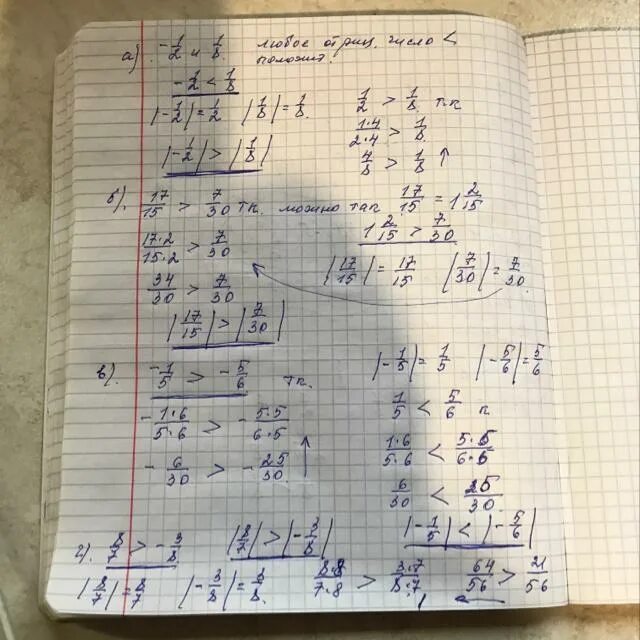 а). -1/2 и 1/8. любое отриц. число <
положит.
-1/2 < 1/8
|-1/2| = 1/2 |1/8| = 1/8. 1/2 > 1/8 т.к
1·4/2·4 > 1/8
|-1/2| > |1/8| 4/8 > 1/8 ↑
б). 17/15 > 7/30 т.к. можно так 17/15 = 1 2/15
17·2/15·2 > 7/30 1 2/15 > 7/30
34/30 > 7/30 |17/15| = 17/15 |7/30| = 7/30
|17/15| > |7/30|
в). -1/5 > -5/6 т.к. |-1/5| = 1/5 |-5/6| = 5/6
-1·6/5·6 > -5·5/6·5 1/5 < 5/6
1·6/5·6 < 5·5/6·5
-6/30 > -25/30 ↑ 6/30 < 25/30
г). 8/7 > -3/8 |8/7| > |-3/8| |-1/5| < |-5/6|
|8/7| = 8/7 |-3/8| = 3/8. 8·8/7·8 > 3·7/8·7 64/56 > 21/56